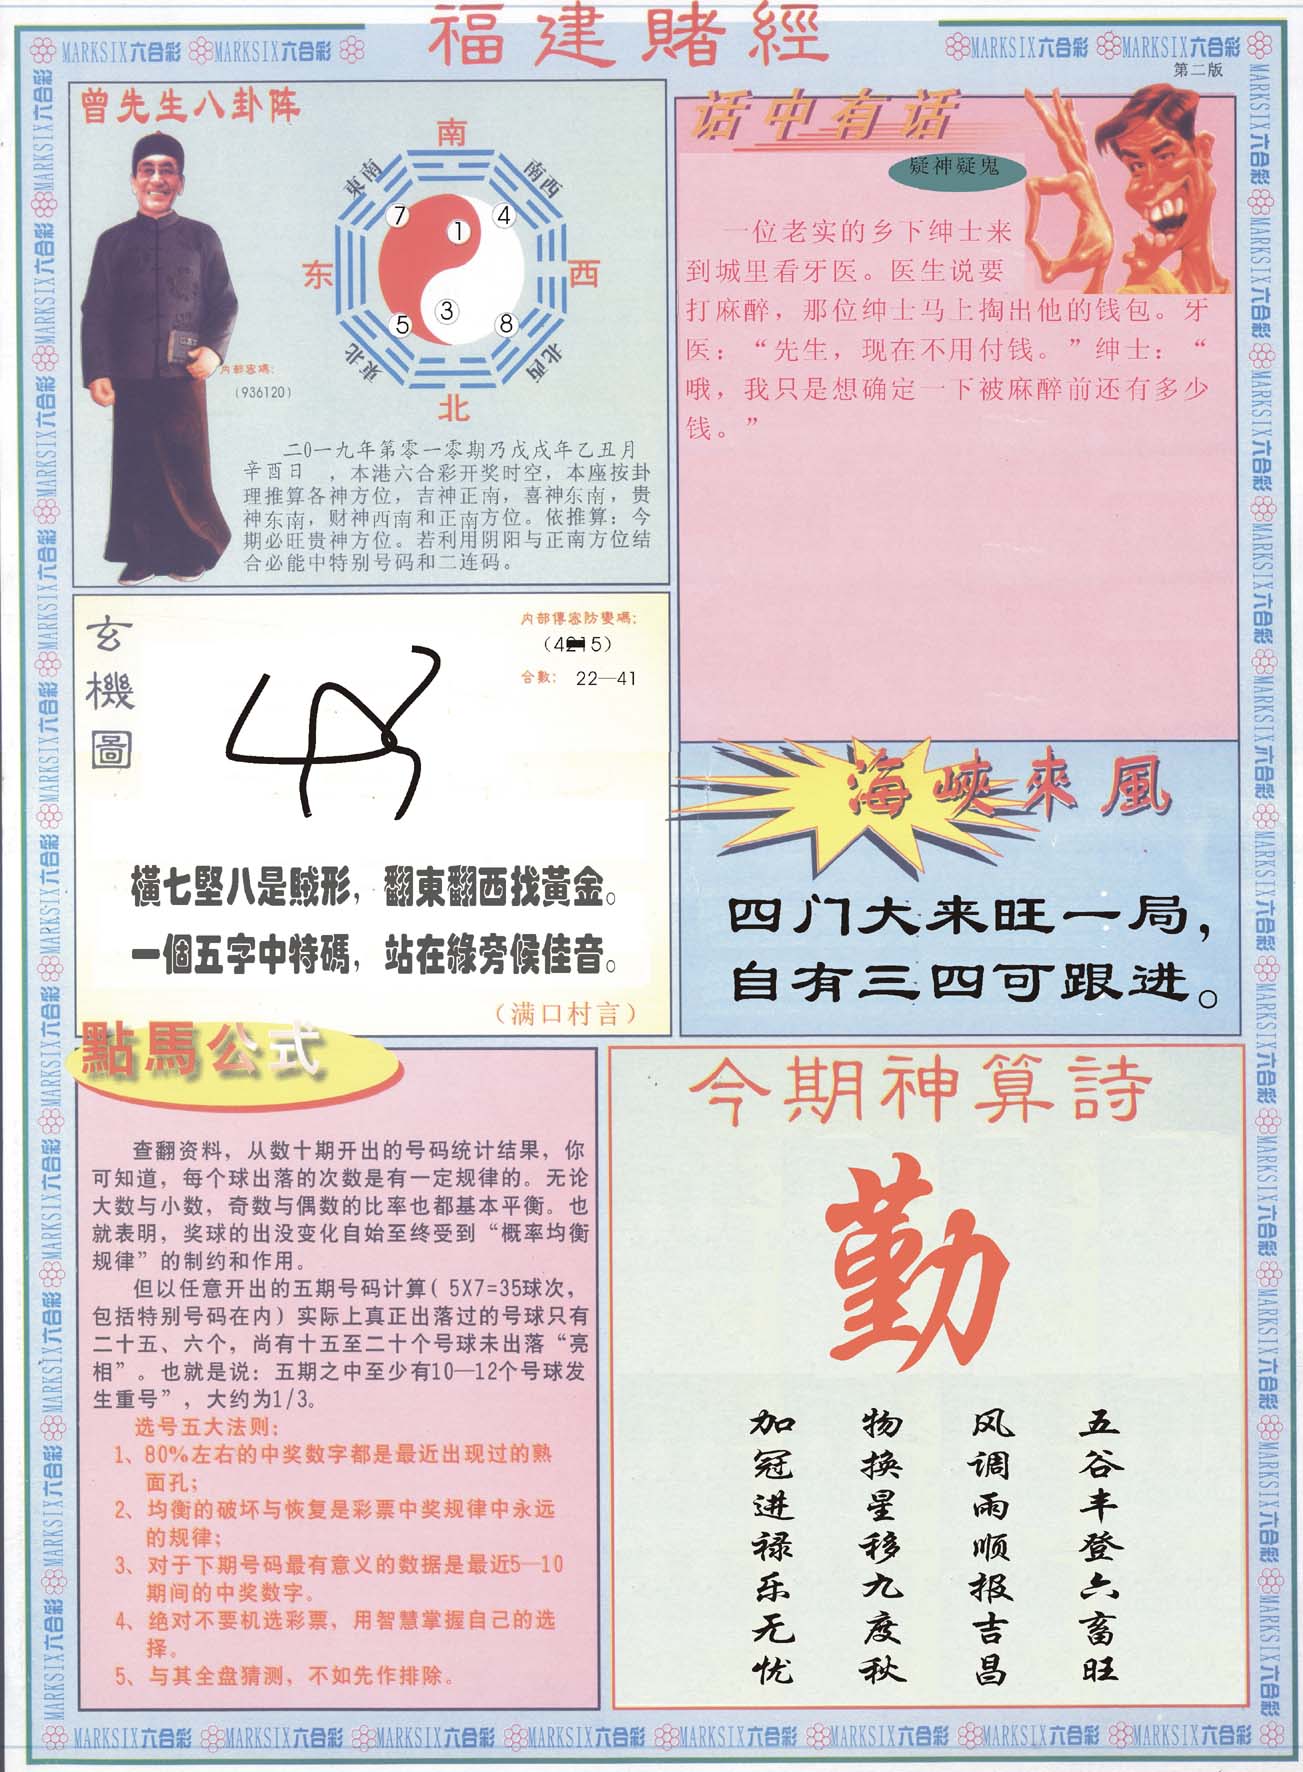 福建賭經
MARKSIX六合彩 MARKSIX六合彩
MARKSIX六合彩 MARKSIX六合彩
第二版
曾先生八卦阵
南
東南
南西
7
1
4
东
西
5
3
8
東北
北西
北
内部密碼:
(936120)
二0一九年第零一零期乃戊戌年乙丑月
辛酉日 ，本港六合彩开奖时空，本座按卦
理推算各神方位，吉神正南，喜神东南，贵
神东南，财神西南和正南方位。依推算：今
期必旺贵神方位。若利用阴阳与正南方位结
合必能中特别号码和二连码。
话中有话
疑神疑鬼
一位老实的乡下绅士来
到城里看牙医。医生说要
打麻醉，那位绅士马上掏出他的钱包。牙
医：“先生，现在不用付钱。”绅士：“
哦，我只是想确定一下被麻醉前还有多少
钱。”
玄機圖
内部傳密防變碼:
合數: 22—41
橫七堅八是賊形，翻東翻西找黃金。
一個五字中特碼，站在綠旁候佳音。
（满口村言）
海峽來風
四门大来旺一局，
自有三四可跟进。
點馬公式
查翻资料，从数十期开出的号码统计结果，你
可知道，每个球出落的次数是有一定规律的。无论
大数与小数，奇数与偶数的比率也都基本平衡。也
就表明，奖球的出没变化自始至终受到“概率均衡
规律”的制约和作用。
但以任意开出的五期号码计算( 5X7=35球次，
包括特别号码在内) 实际上真正出落过的号球只有
二十五、六个，尚有十五至二十个号球未出落“亮
相”。也就是说：五期之中至少有10—12个号球发
生重号”，大约为1/3。
选号五大法则:
1、80%左右的中奖数字都是最近出现过的熟
面孔;
2、均衡的破坏与恢复是彩票中奖规律中永远
的规律;
3、对于下期号码最有意义的数据是最近5—10
期间的中奖数字。
4、绝对不要机选彩票，用智慧掌握自己的选
择。
5、与其全盘猜测，不如先作排除。
今期神算詩
勤
五谷丰登六畜旺
风调雨顺报吉昌
物换星移九度秋
加冠进禄乐无忧
MARKSIX六合彩 MARKSIX六合彩 MARKSIX六合彩 MARKSIX六合彩 MARKSIX六合彩 MARKSIX六合彩 MARKSIX六合彩 MARKSIX六合彩